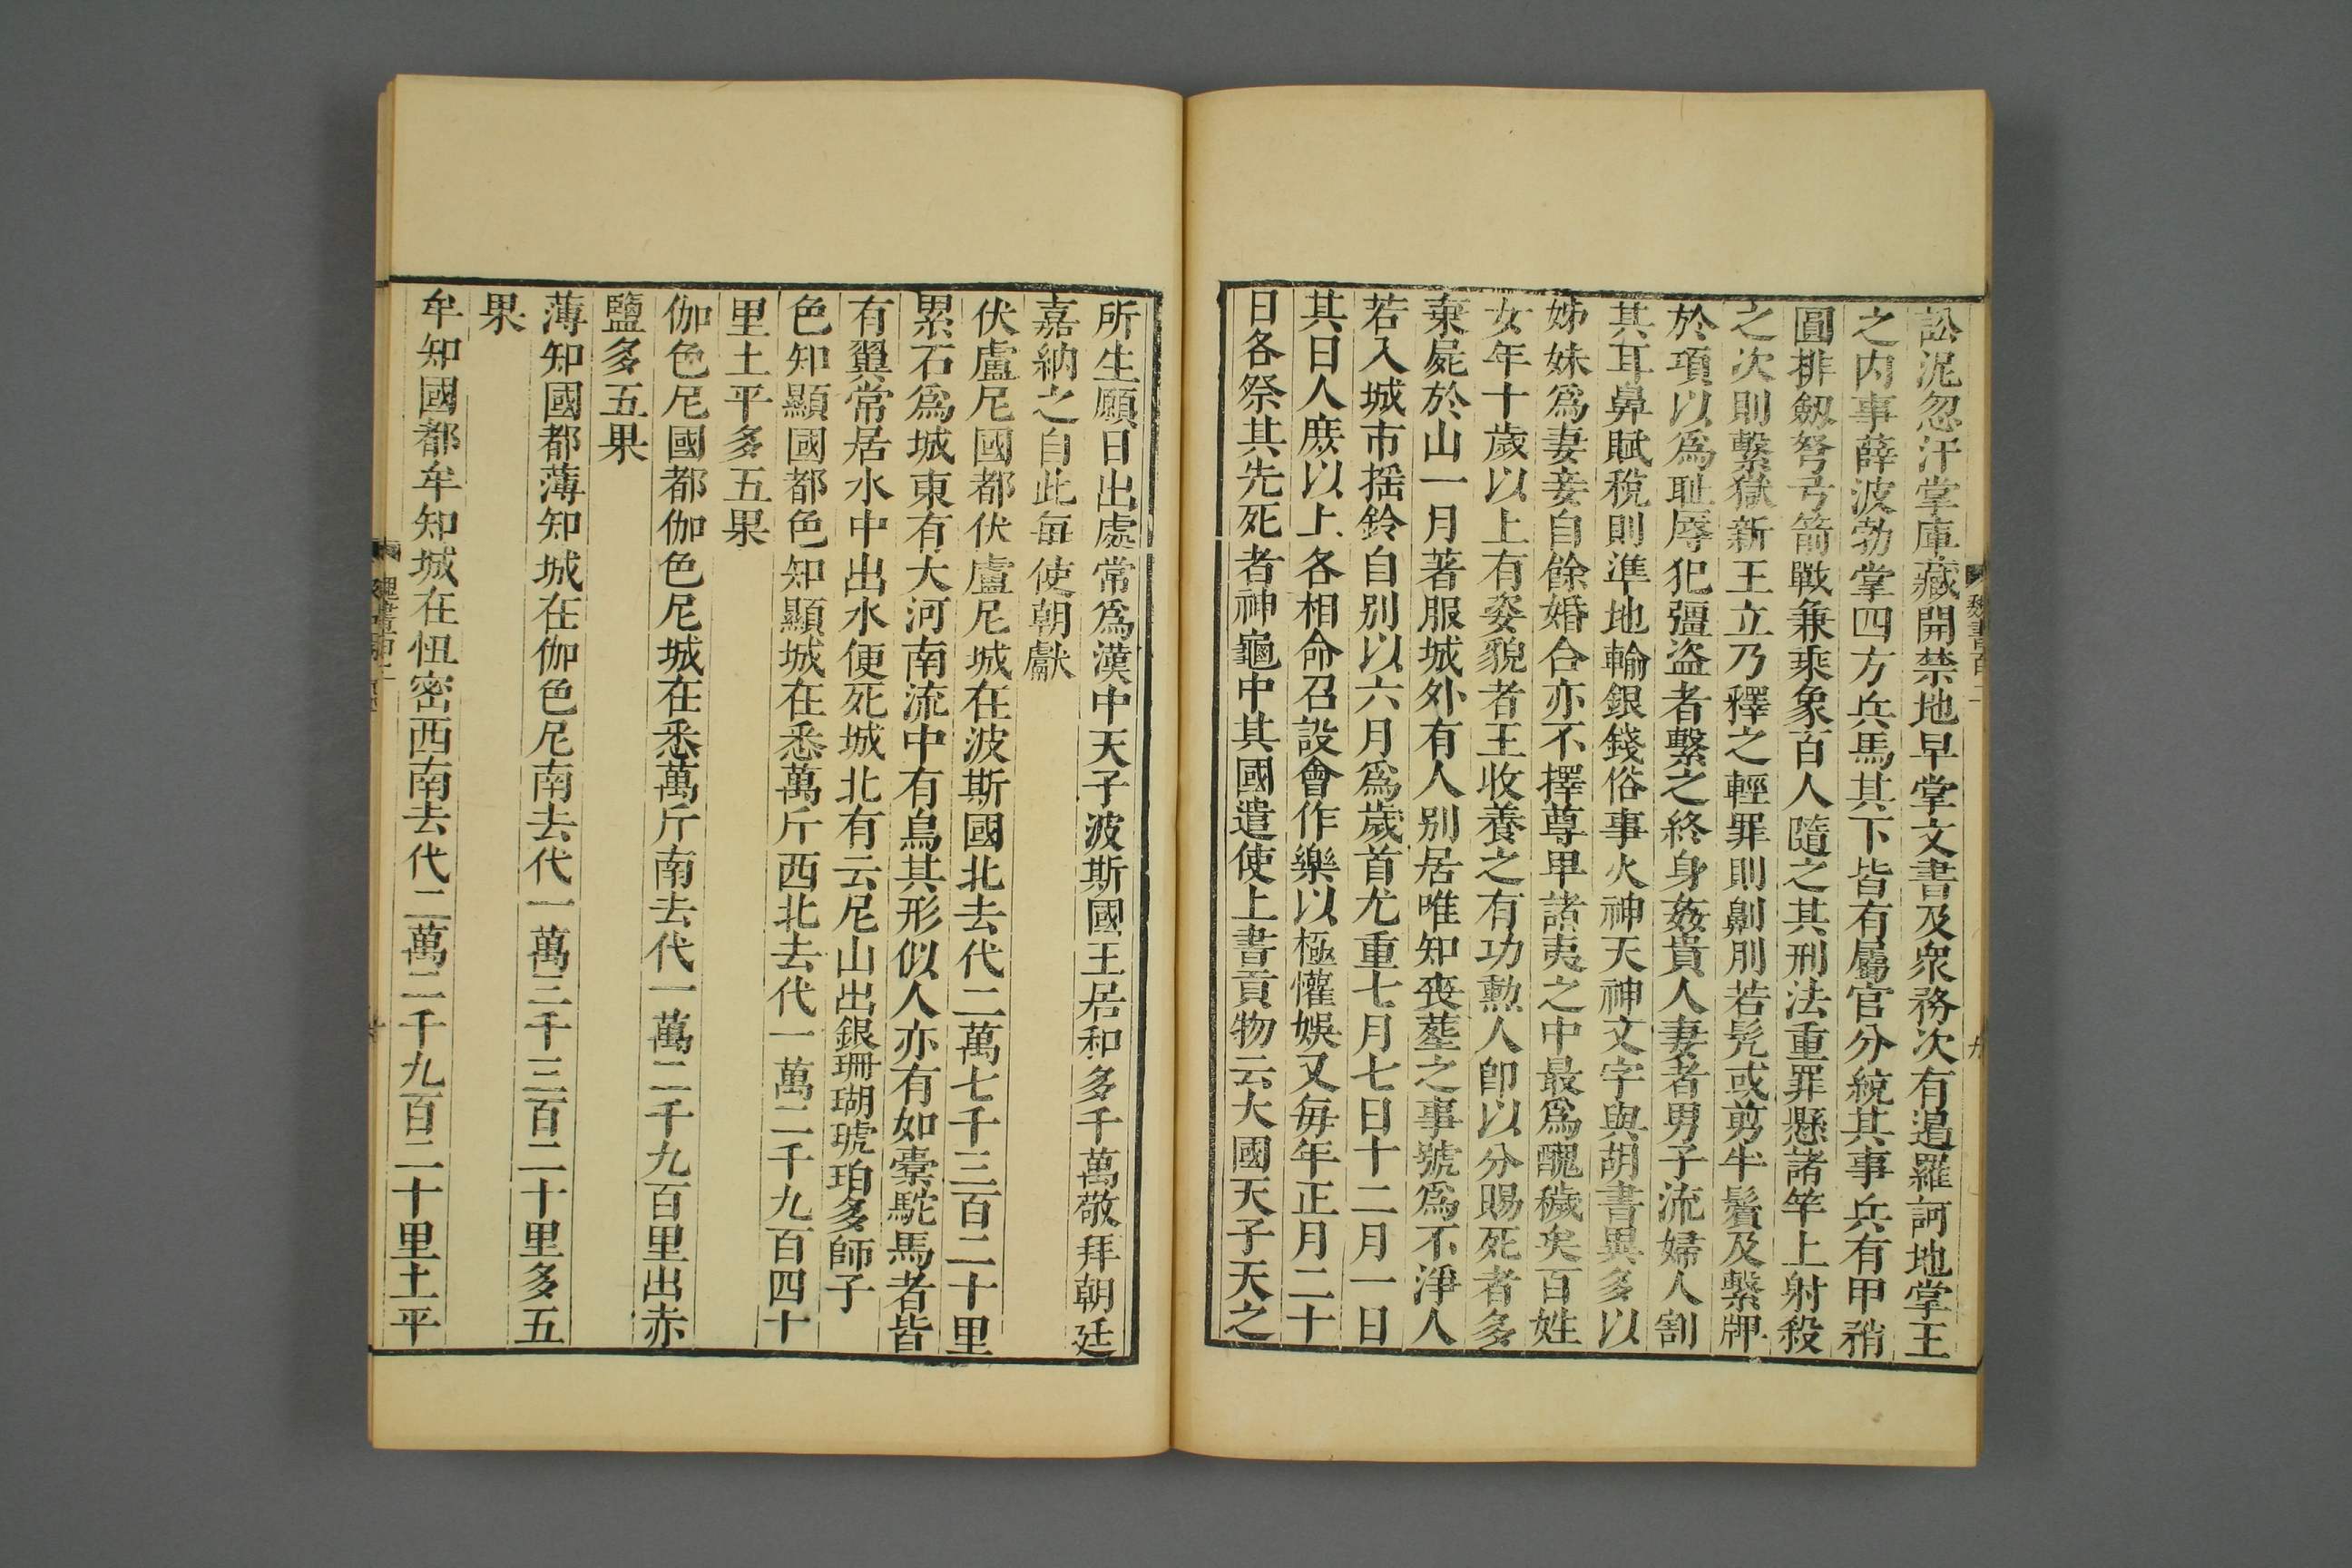 訟泥忽汗掌庫藏開禁地早掌文書及衆務次有遏羅訶地掌王
之内事薛波勃掌四方兵馬其下皆有屬官分統其事兵有甲矟
圓排劔弩弓箭戰兼乘象百人隨之其刑法重罪懸諸竿上射殺
之次則繫獄新王立乃釋之輕罪則劓刖若髠或剪半鬢及繫牌
於項以爲耻辱犯彊盜者繫之終身姦貴人妻者男子流婦人割
其耳鼻賦稅則準地輸銀錢俗事火神天神文字與胡書異多以
姊妹爲妻妾自餘婚合亦不擇尊卑諸夷之中最爲醜穢矣百姓
女年十歲以上有姿貌者王收養之有功勲人卽以分賜死者多
棄屍於山一月著服城外有人別居唯知喪塟之事號爲不淨人
若入城市搖鈴自別以六月爲歲首尤重七月七日十二月一日
其日人庶以上各相命召設會作樂以極懽娛又每年正月二十
日各祭其先死者神龜中其國遣使上書貢物云大國天子天之
魏書百二
九
所生願日出處常爲漢中天子波斯國王居和多千萬敬拜朝廷
嘉納之自此每使朝獻
伏盧尼國都伏盧尼城在波斯國北去代二萬七千三百二十里
累石爲城東有大河南流中有鳥其形似人亦有如橐駝馬者皆
有翼常居水中出水便死城北有云尼山出銀珊瑚琥珀多師子
色知顯國都色知顯城在悉萬斤西北去代一萬二千九百四十
里土平多五果
伽色尼國都伽色尼城在悉萬斤南去代一萬二千九百里出赤
鹽多五果
薄知國都薄知城在伽色尼南去代一萬三千三百二十里多五
果
牟知國都牟知城在忸密西南去代二萬二千九百二十里土平